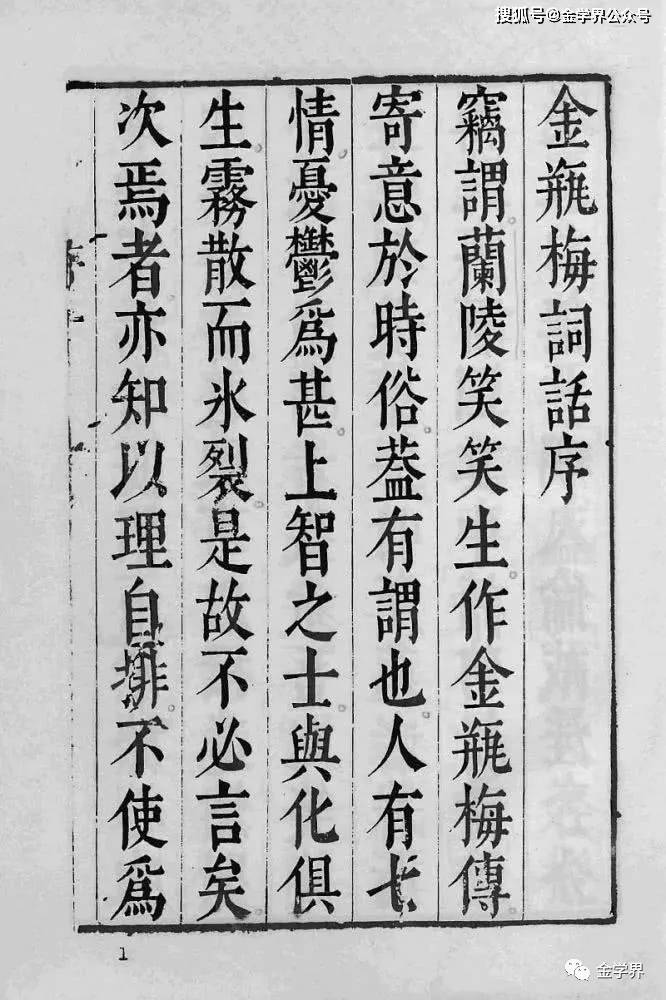 搜狐号@金学界公众号
金瓶梅詞話序
竊謂蘭陵笑笑生作金瓶梅傳
寄意於時俗葢有謂也人有七
情憂鬱爲甚上智之士與化俱
生霧散而氷裂是故不必言矣
次焉者亦知以理自排不使爲
序
1
金学界